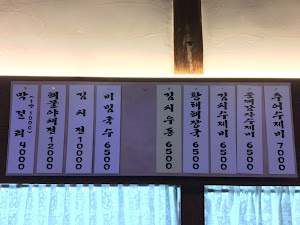 막걸리 (1잔 1000) 4000
해물야채전 12000
김치전 10000
비빔국수 6500
김치우동 6500
황태해장국 6500
김치수제비 6500
들깨감자수제비 6500
추어수제비 7000